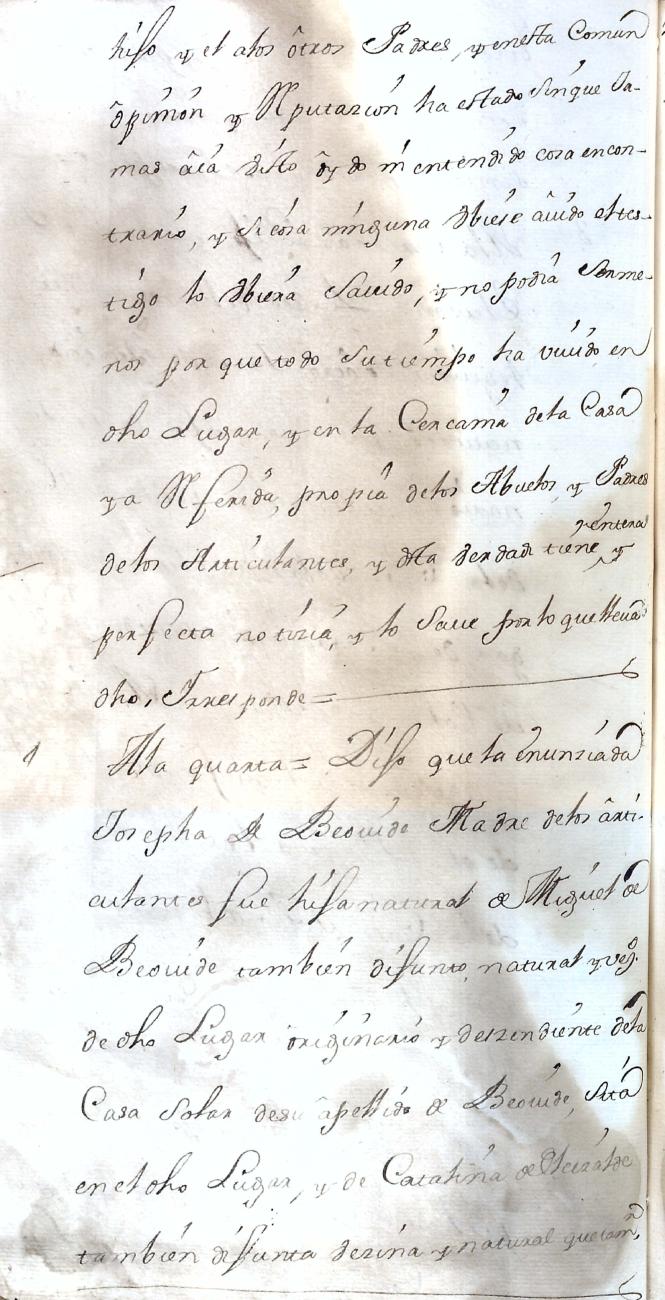 hiso y el a los ôtros Padres, y enesta Común
ôpinión y Reputazión ha estado sinque Ja-
mas âia visto ôydo ni entendido cosa encon-
trario, y si cosa ninguna Vbiese âuido eltes-
tigo lo Vbiera Sauido, y no podia Senme-
nos por que todo Su tiempo ha viuido en
dho Lugar, y en la Cercania dela Casa
ya Referida, propia delos Abuelos, y Padres
delos Articulantes, y esta Verdad tiene, y
entera
perfecta notizia, y lo Saue por lo que lleua
dho, Yrresponde=
1
Ala quarta= Dijo que la Enunziada
Josepha de Beouide Madre delos ârti-
culantes fue hija natural de Miguel de
Beouide tambien difunto, natural y veз.º
de dho Lugar originario y deszendiente dela
Casa Solar desu âpellido de Beouide, sita
en el dho Lugar, y de Catalina de
también difunta vezina y natural quetam.n